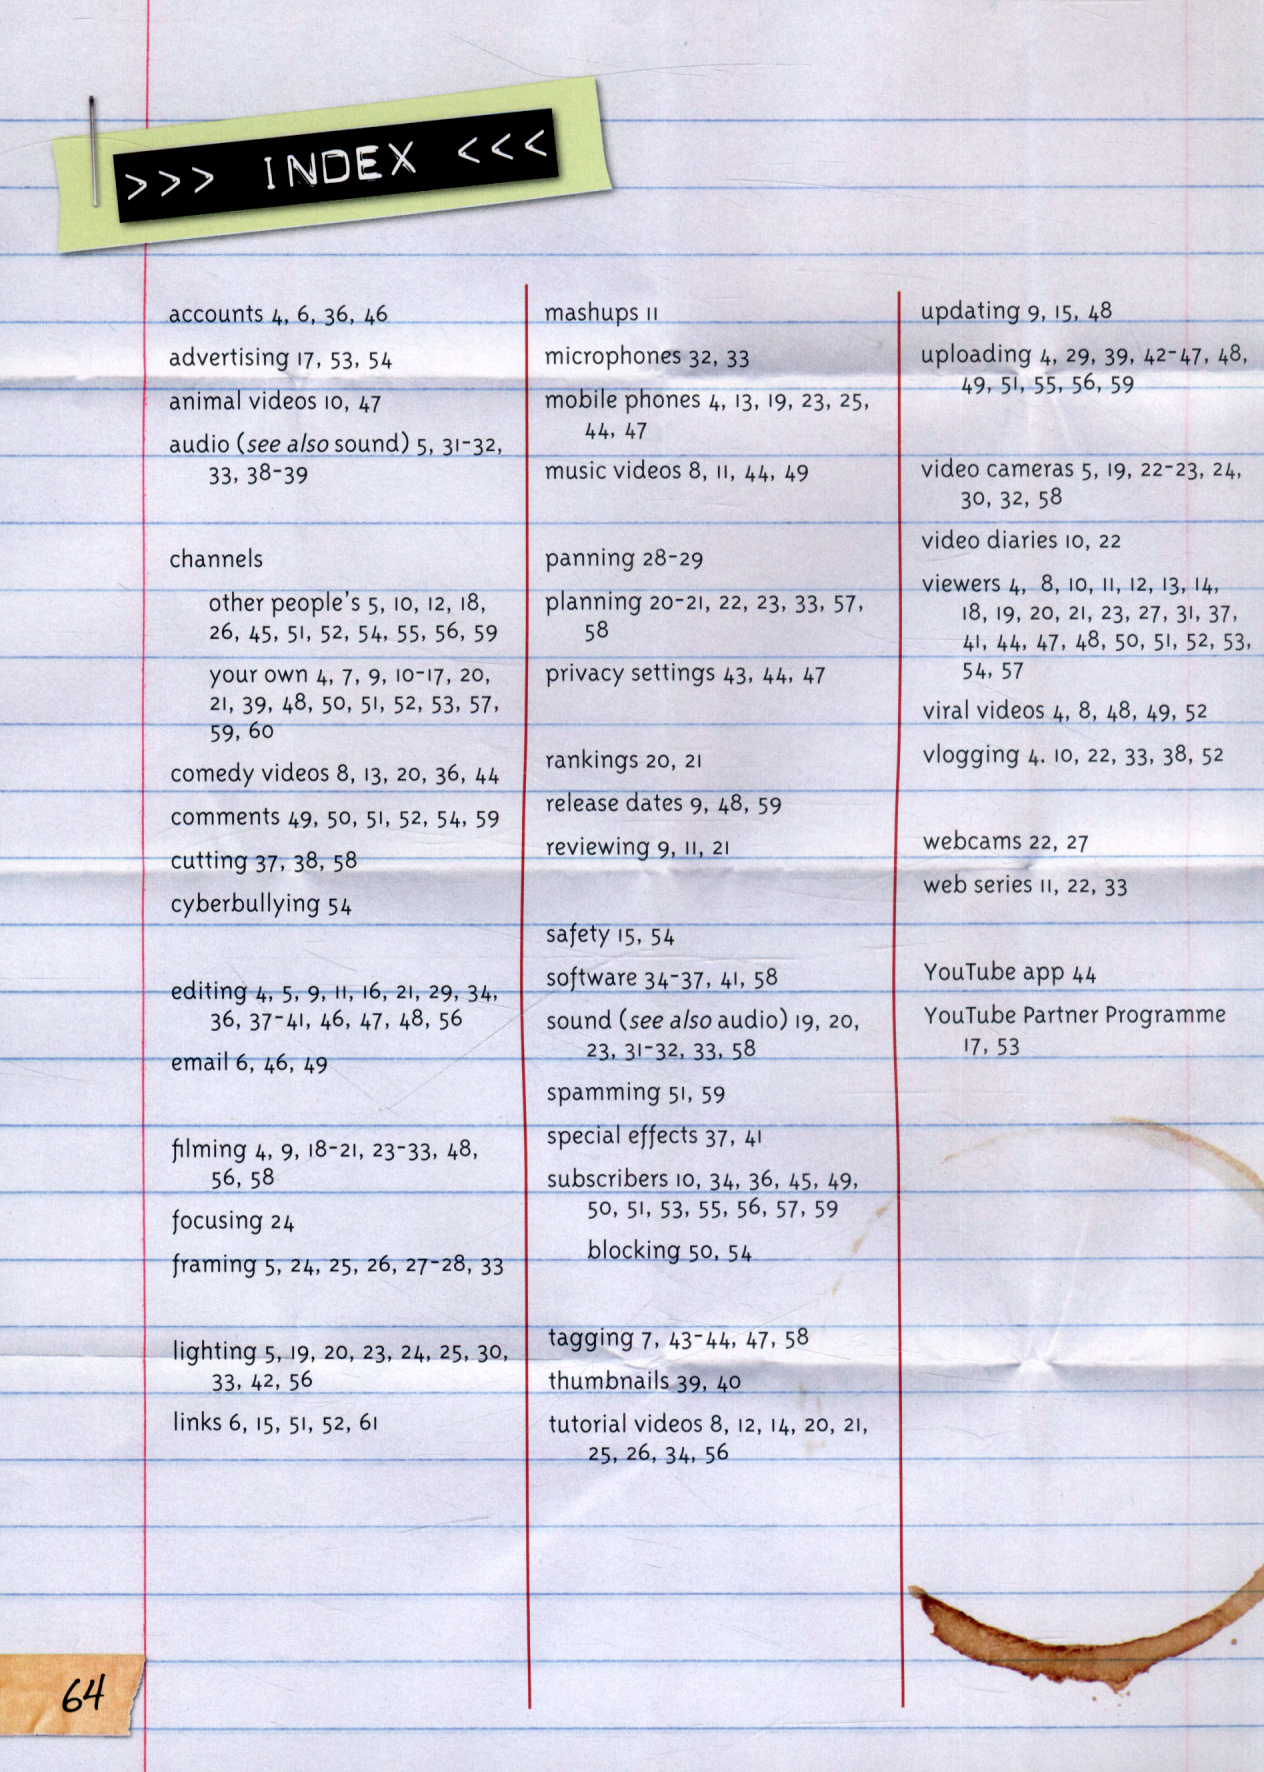 >>> INDEX <<<
accounts 4, 6, 36, 46
advertising 17, 53, 54
animal videos 10, 47
audio (see also sound) 5, 31-32,
33, 38-39
channels
other people's 5, 10, 12, 18,
26, 45, 51, 52, 54, 55, 56, 59
your own 4, 7, 9, 10-17, 20,
21, 39, 48, 50, 51, 52, 53, 57,
59, 60
comedy videos 8, 13, 20, 36, 44
comments 49, 50, 51, 52, 54, 59
cutting 37, 38, 58
cyberbullying 54
editing 4, 5, 9, 11, 16, 21, 29, 34,
36, 37-41, 46, 47, 48, 56
email 6, 46, 49
filming 4, 9, 18-21, 23-33, 48,
56, 58
focusing 24
framing 5, 24, 25, 26, 27-28, 33
lighting 5, 19, 20, 23, 24, 25, 30,
33, 42, 56
links 6, 15, 51, 52, 61
mashups 11
microphones 32, 33
mobile phones 4, 13, 19, 23, 25,
44, 47
music videos 8, 11, 44, 49
panning 28-29
planning 20-21, 22, 23, 33, 57,
58
privacy settings 43, 44, 47
rankings 20, 21
release dates 9, 48, 59
reviewing 9, 11, 21
safety 15, 54
software 34-37, 41, 58
sound (see also audio) 19, 20,
23, 31-32, 33, 58
spamming 51, 59
special effects 37, 41
subscribers 10, 34, 36, 45, 49,
50, 51, 53, 55, 56, 57, 59
blocking 50, 54
tagging 7, 43-44, 47, 58
thumbnails 39, 40
tutorial videos 8, 12, 14, 20, 21,
25, 26, 34, 56
updating 9, 15, 48
uploading 4, 29, 39, 42-47, 48,
49, 51, 55, 56, 59
video cameras 5, 19, 22-23, 24,
30, 32, 58
video diaries 10, 22
viewers 4, 8, 10, 11, 12, 13, 14,
18, 19, 20, 21, 23, 27, 31, 37,
41, 44, 47, 48, 50, 51, 52, 53,
54, 57
viral videos 4, 8, 48, 49, 52
vlogging 4. 10, 22, 33, 38, 52
webcams 22, 27
web series 11, 22, 33
YouTube app 44
YouTube Partner Programme
17, 53
64